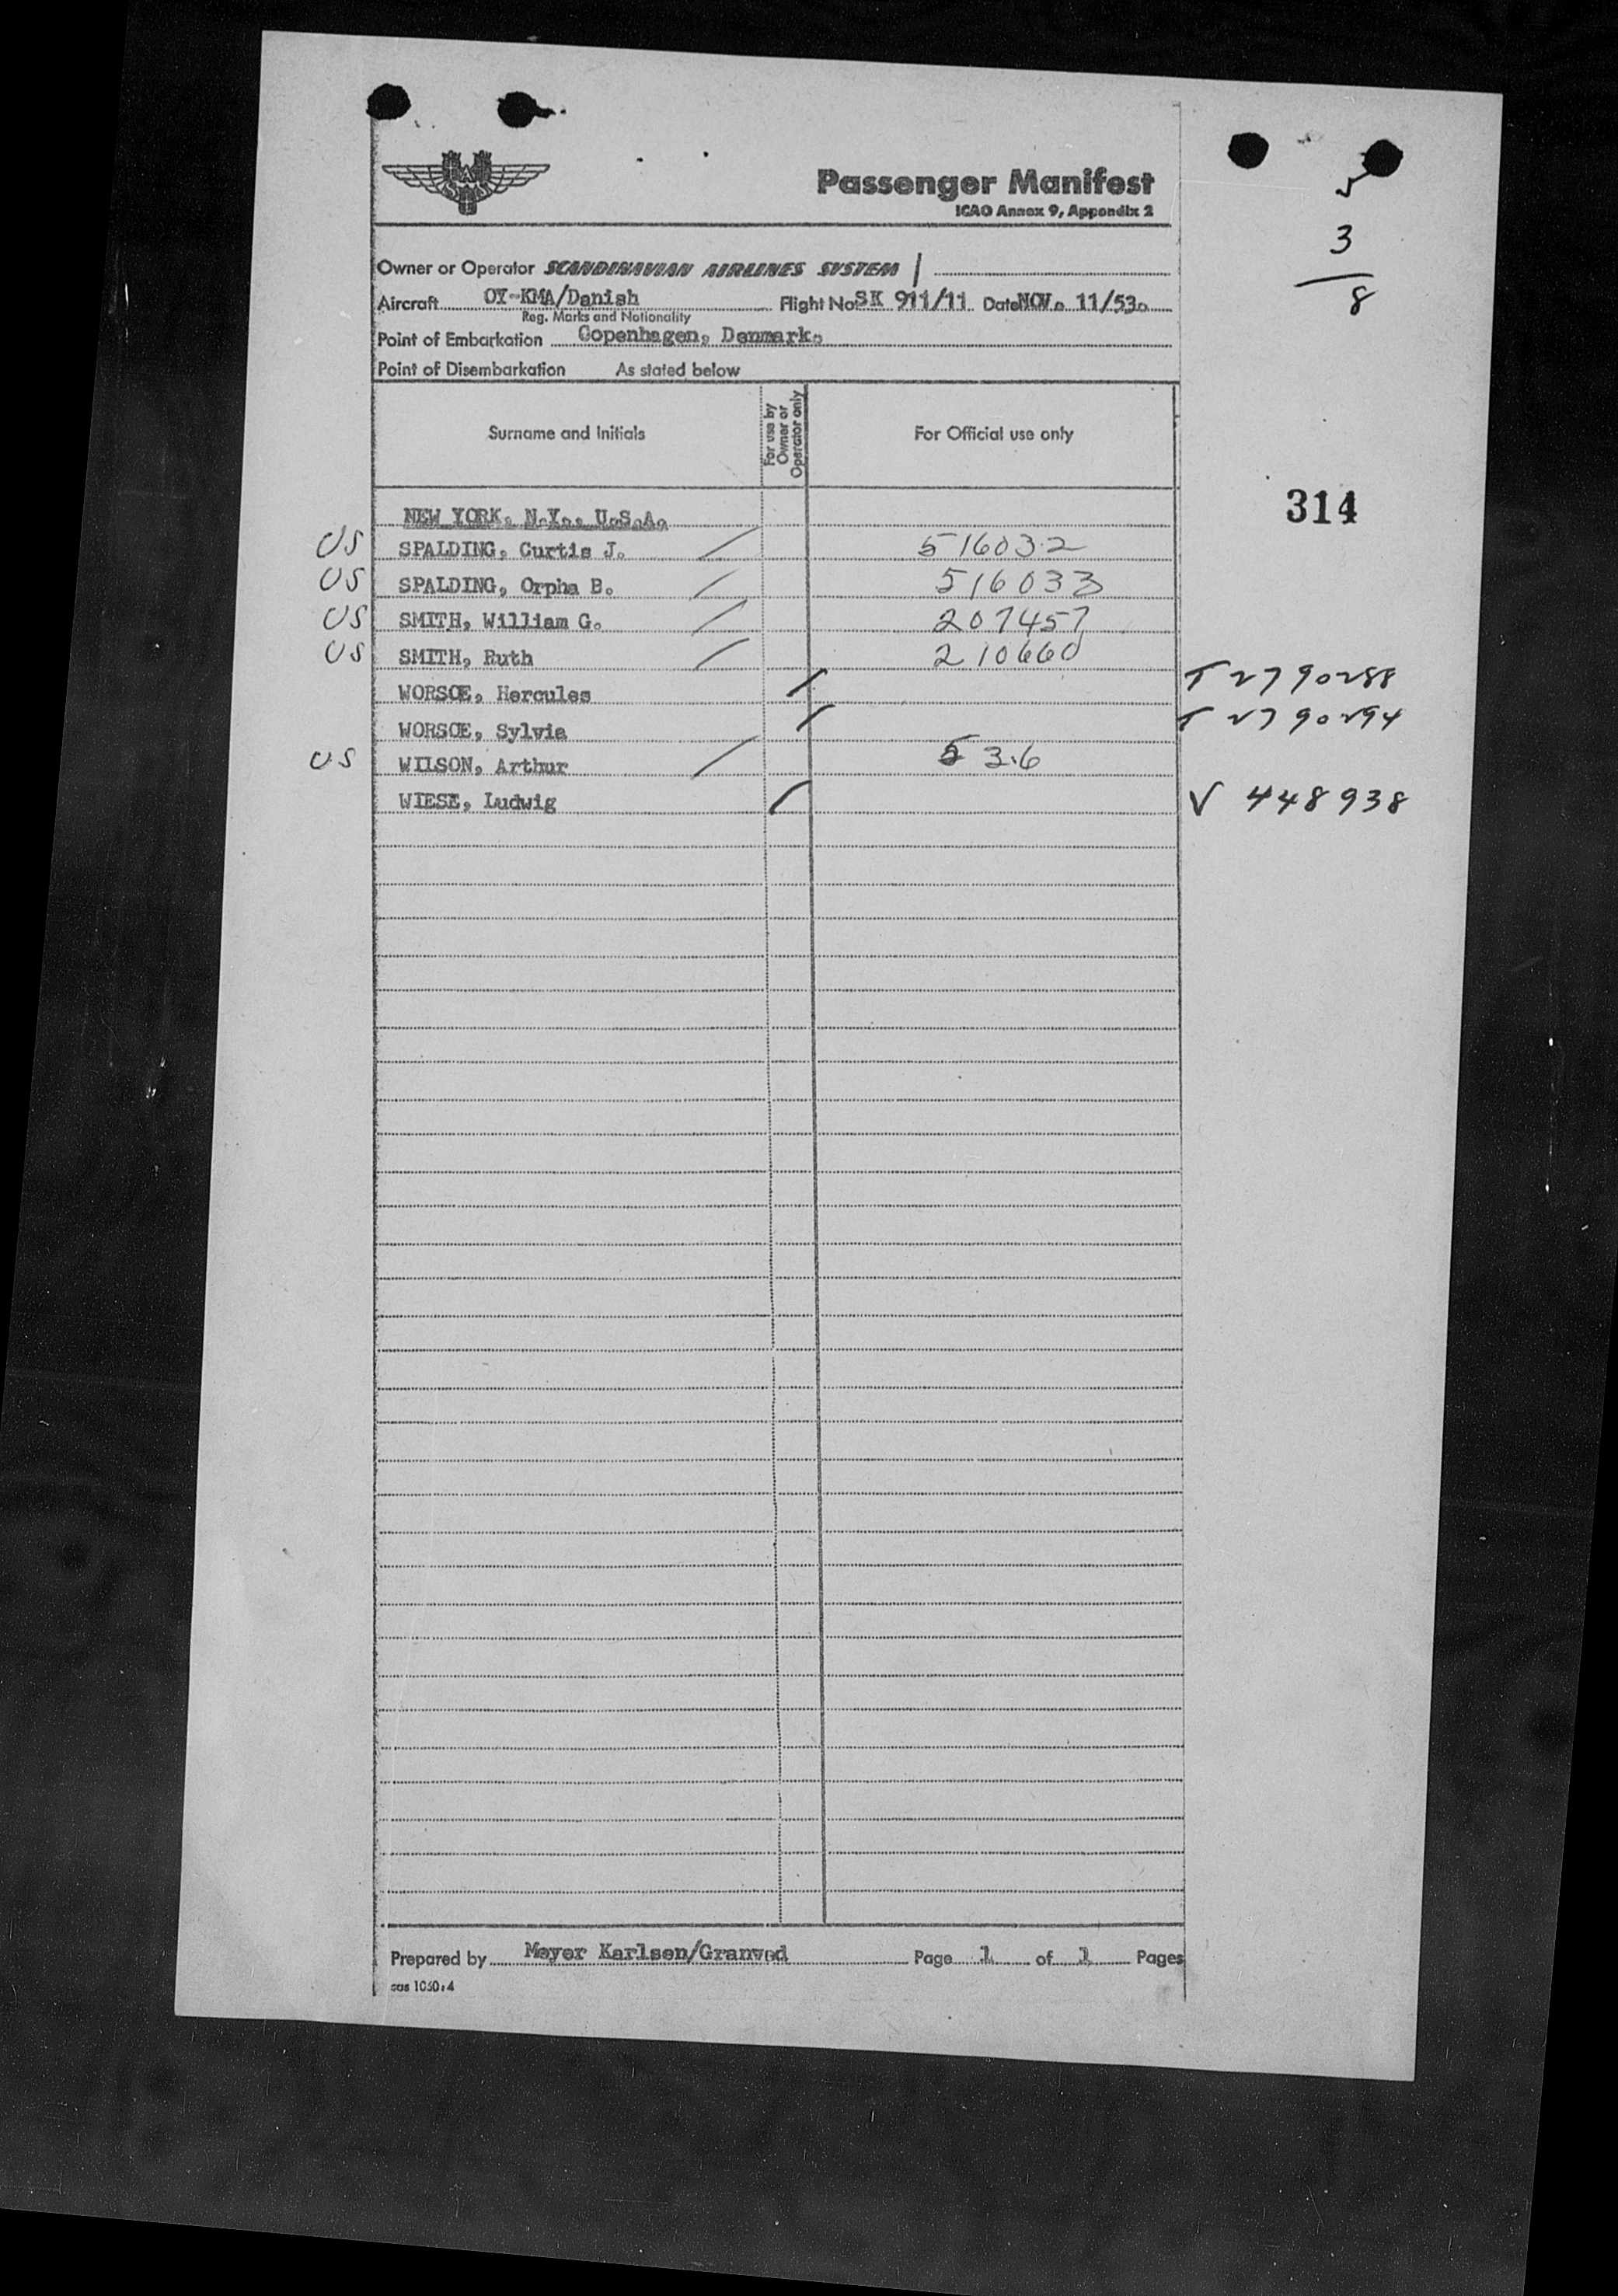 SAS
Passenger Manifest
ICAO Annex 9, Appendix 2
5
3
8
Owner or Operator SCANDINAVIAN AIRLINES SYSTEM
Aircraft OY-KMA/Danish Flight No SK 911/11 Date NOV. 11/53.
Reg. Marks and Nationality
Point of Embarkation Copenhagen, Denmark.
Point of Disembarkation As stated below
Surname and Initials For use by Owner or Operator only For Official use only
314
NEW YORK, N.Y., U.S.A.
US SPALDING, Curtis J. / 516032
US SPALDING, Orpha B. / 516033
US SMITH, William G. / 207457
US SMITH, Ruth / 210660
WORSOE, Hercules / T 2790288
WORSOE, Sylvia / T 2790294
US WILSON, Arthur / 536
WIESE, Ludwig / V 448938
Prepared by Meyer Karlsen/Granvod Page 1 of 1 Pages
sas 1060:4